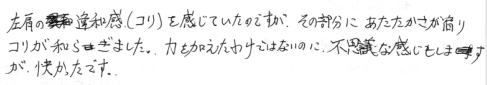 左肩の違和感(コリ)を感じていたのですが、その部分にあたたかさが宿り
コリが和らぎました。力を加えたわけではないのに、不思議な感じもします
が、快かったです。